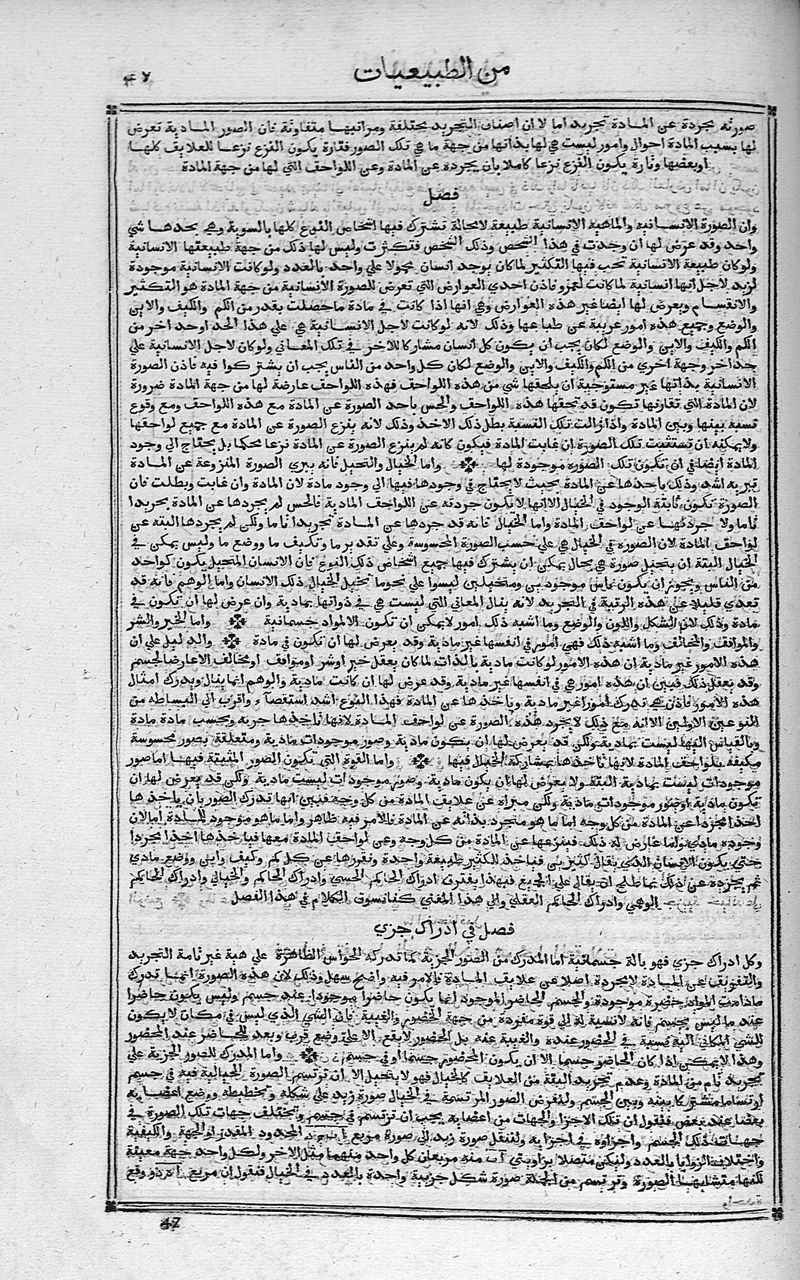 من الطبيعيات
صورته مجردة عن المادة تجريد اما لا ان اصناف التجريد مختلفة ومراتبها متفاوتة فان الصور المادية تعرض
لها بسبب المادة احوال وامور ليست هي لها بذاتها من جهة ما هي تلك الصور فتارة يكون النزع نزعا للعلايق كلها
او بعضها وتارة يكون النزع نزعا كاملا بان يجرده عن المادة وعن اللواحق التي لها من جهة المادة
فصل
وان الصورة الانسانية والماهية الانسانية طبيعة لا محالة تشترك فيها اشخاص النوع كلها بالسوية وهي بحدها شي
واحد وقد عرض لها ان وجدت في هذا الشخص وذلك الشخص فتكثرت وليس لها ذلك من جهة طبيعتها الانسانية
ولو كان طبيعة الانسانية تجب فيها التكثير لما كان يوجد انسان محمولا علي واحد بالعدد ولو كانت الانسانية موجودة
لزيد لاجل انها انسانية لما كانت لعمرو فاذن احدي العوارض التي تعرض للصورة الانسانية من جهة المادة هو التكثير
والانقسام ويعرض لها ايضا غير هذه العوارض وهي انها اذا كانت في مادة ما حصلت بقدر من الكم والكيف والاين
والوضع وجميع هذه امور غريبة عن طباعها وذلك لانه لو كانت لاجل الانسانية هي علي هذا الحد او حد اخر من
الكم والكيف والاين والوضع لكان يجب ان يكون كل انسان مشاركا للاخر في تلك المعاني ولو كان لاجل الانسانية علي
حد اخر وجهة اخري من الكم والكيف والاين والوضع لكان كل واحد من الناس يجب ان يشتركوا فيه فاذن الصورة
الانسانية بذاتها غير مستوجبة ان يلحقها شي من هذه اللواحق فهذه اللواحق عارضة لها من جهة المادة ضرورة
لان المادة التي تقارنها تكون قد تحقها هذه اللواحق والحس ياحد الصورة عن المادة مع هذه اللواحق ومع وقوع
نسبة بينها وبين المادة واذا زالت تلك النسبة بطل ذلك الاخذ وذلك لانه ينزع الصورة عن المادة مع جميع لواحقها
ولا يمكنه ان تستثبت تلك الصورة ان غابت المادة فيكون كانه لم ينزع الصورة عن المادة نزعا محكما بل يحتاج الي وجود
المادة ايضا في ان تكون تلك الصورة موجودة لها واما الخيال والتخيل فانه يبري الصورة المنزوعة عن المادة
تبرية اشد وذلك ياحدها عن المادة بحيث لا يحتاج في وجودها فيها الي وجود مادة لان المادة وان غابت وبطلت فان
الصورة تكون ثابتة الوجود في الخيال الا انها لا يكون جردته عن اللواحق المادية فالحس لم يجردها عن المادة تجريدا
تاما ولا جردها عن لواحق المادة واما الخيال فانه قد جردها عن المادة تجريدا تاما ولكن لم يجردها البته عن
لواحق المادة لان الصورة في الخيال هي علي حسب الصورة المحسوسة وعلي تقدير ما وتكيف ما ووضع ما وليس يمكن في
الخيال البتة ان يتخيل صورة هي بحال يمكن ان يشترك فيها جميع اشخاص ذلك النوع فان الانسان المتخيل يكون كواحد
من الناس ويجوز ان يكون ناس موجودين ومتخيلين ليسوا علي نحو ما تخيل الخيال ذلك الانسان واما الوهم فانه قد
تعدي قليلا عن هذه الرتبة في التجريد لانه ينال المعاني التي ليست هي في ذواتها بمادية وان عرض لها ان تكون في
مادة وذلك لان الشكل واللون والوضع وما اشبه ذلك امور لا يمكن ان تكون الا لمواد جسمانية واما الخير والشر
والموافق والمخالف وما اشبه ذلك فهي امور في انفسها غير مادية وقد يعرض لها ان تكون في مادة والدليل علي ان
هذه الامور غير مادية ان هذه الامور لو كانت مادية بالذات لما كان يعقل خير او شر او موافق او مخالف الا عارضا لجسم
وقد يعقل ذلك فبين ان هذه امور هي في انفسها غير مادية وقد عرض لها ان كانت مادية والوهم انما ينال ويدرك امثال
هذه الامور فاذن هي تدرك امورا غير مادية وياخذها عن المادة فهذا النوع اشد استقصاء واقرب الي البساطة من
النوعين الاولين الا انه مع ذلك لا يجرد هذه الصورة عن لواحق المادة لانها ناخذها جزية وبحسب مادة مادة
وبالقياس اليها ليست بمادية ولكن قد يعرض لها ان يكون مادية وصور موجودات مادية ومتعلقة بصور محسوسة
مكيفة بلواحق المادة لانها تاخذها بمشاركة الخيال فيها واما القوة التي تكون الصور المثبتة فيها اما صور
موجودات ليست بمادية البتة ولا يعرض لها ان يكون مادية وصور موجودات ليست مادية ولكن قد يعرض لها ان
تكون مادية او صور موجودات مادية ولكن مبراة عن علايق المادة من كل وجه فبين انها تدرك الصور بان ياخذها
اخذا مجردا عن المادة من كل وجه اما ما هو متجرد بذاته عن المادة فالامر فيه ظاهر واما ما هو موجود للمادة اما لان
وجوده مادي واما عارض له ذلك فينزعها عن المادة من كل وجه وعن لواحق المادة معها فياخذها اخذا مجردا
حتي يكون الانسان الذي يقال كثيرين فياخذ للكثير طبيعة واحدة ونفرزها عن كل كم وكيف واين ووضع مادي
ثم يجرده عن ذلك بما ان يقال علي الجميع فبهذا يفترق ادراك الحاكم الحسي وادراك الحاكم والخيالي وادراك الحاكم
الوهمي وادراك الحاكم العقلي والي هذا المعني كنا نسوق الكلام في هذا الفصل
فصل في ادراك جزي
وكل ادراك جزي فهو بالة جسمانية اما المدرك من الصور الجزية كما تدركه الحواس الظاهرة علي هية غير تامة التجريد
والتفريق عن المادة لا مجردة اصلا عن علايق المادة فالامر فيه واضح سهل وذلك لان هذه الصورة انما تدرك
ما دامت المواد حضيرة موجودة والجسم الحاضر الموجود انما يكون حاضرا موجودا عند جسم وليس يكون حاضرا
عند ما ليس بجسم فانه لا نسبة له الي قوة مفردة من جهة الحضور والغيبة فان الشي الذي ليس في مكان لا يكون
للشي المكاني اليه نسبة في الحضور عنده والغيبة عنه بل الحضور لا يقع الا علي وضع قرب وبعد للحاضر عند المحضور
وهذا لا يمكن اذا كان الحاضر جسما الا ان يكون المحضور جسما او في جسم واما المدرك للصور الجزية علي
تجريد تام من المادة وعدم تجريد البتة من العلايق كالخيال فهو لا يتخيل الا ان ترتسم الصورة الخيالية فيه في جسم
ارتساما مشتركا بينه وبين الجسم ولنفرض الصور المرتسمة في الخيال صورة زيد علي شكله وتخطيطه ووضع اعضايه
بعضا عند بعض فنقول ان تلك الاجزا والجهات من اعضايه يجب ان ترتسم في جسم وتختلف جهات تلك الصورة في
جهات ذلك الجسم واجزاوه في اجزايه ولننقل صورة زيد الي صورة مربع المحدود المقدار والجهة والكيفية
واختلاف الزوايا بالعدد وليكن متصلا بزاويتي آب منه مربعان كل واحد منهما مثل الاخر ولكل واحد جهة معينة
لكنها متشابهتا الصورة وترتسم من الجملة صورة شكل جزيية واحدة بالعدد في الخيال فنقول ان مربع وقع
47